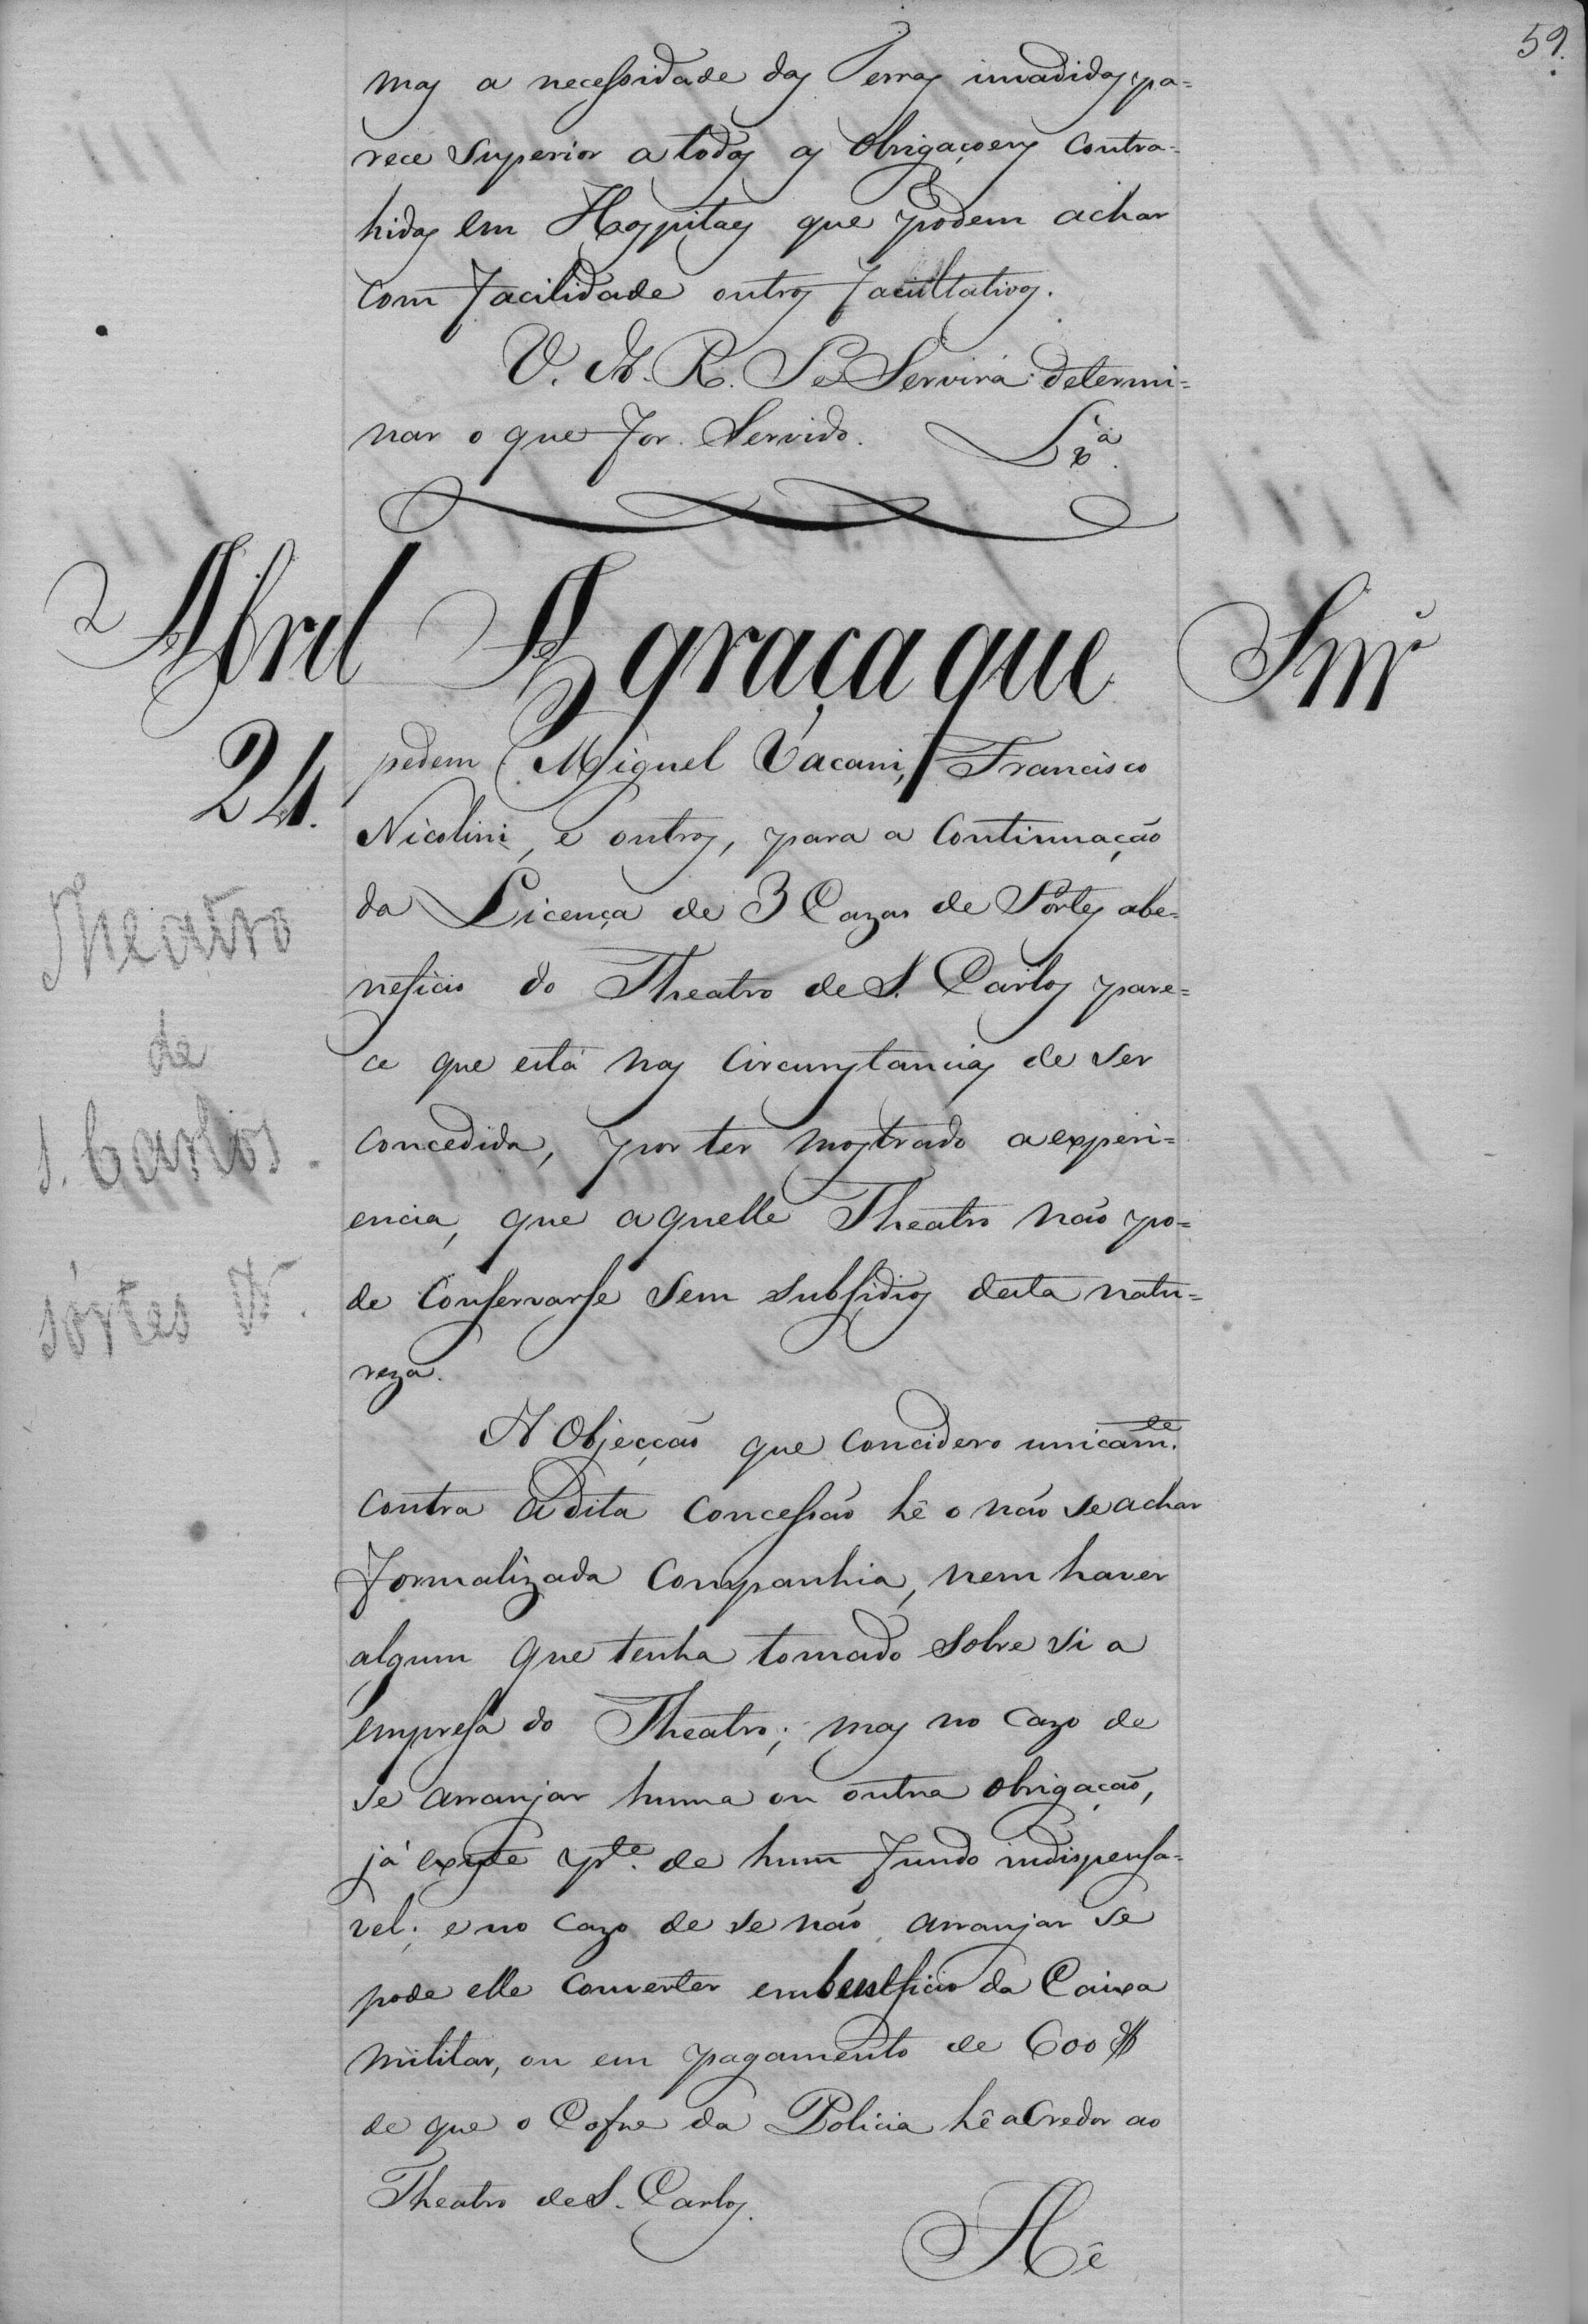 59.
mas a necessidade das Terras invadidas pa=
rece superior a todas as Obrigaçoens Contra=
hidas em Hospitaes que podem achar
com facilidade outros facultativos.
V. A. R. Se Servirá determi=
nar o que for Servido. Lxª.
Abril A graça que Snr
24. pedem Miguel Vacani, Francisco
Nicolini, e outros, para a Continuação
da Licença de 3 Cazas de Sortes abe=
neficio do Theatro de S. Carlos pare=
ce que está nas Circunstancias de ser
concedida, por ter mostrado a experi=
encia, que aquelle Theatro não po=
de Conservarse Sem subsidios desta natu=
reza.
Theatro
de
S. Carlos.
Sórtes N.
A Objecção que Concidero unicamte.
contra a dita Concessão hê o não se achar
formalizada Companhia, nem haver
algum que tenha tomado sobre si a
empresa do Theatro; mas no cazo de
se arranjar huma ou outra obrigação,
já existe pte. de hum fundo indispensa=
vel; e no cazo de se não arranjar se
pode elle Converter em beneficio da Caixa
militar, ou em pagamento de 600$
de que o Cofre da Policia hê acredor ao
Theatro de S. Carlos.
Hê